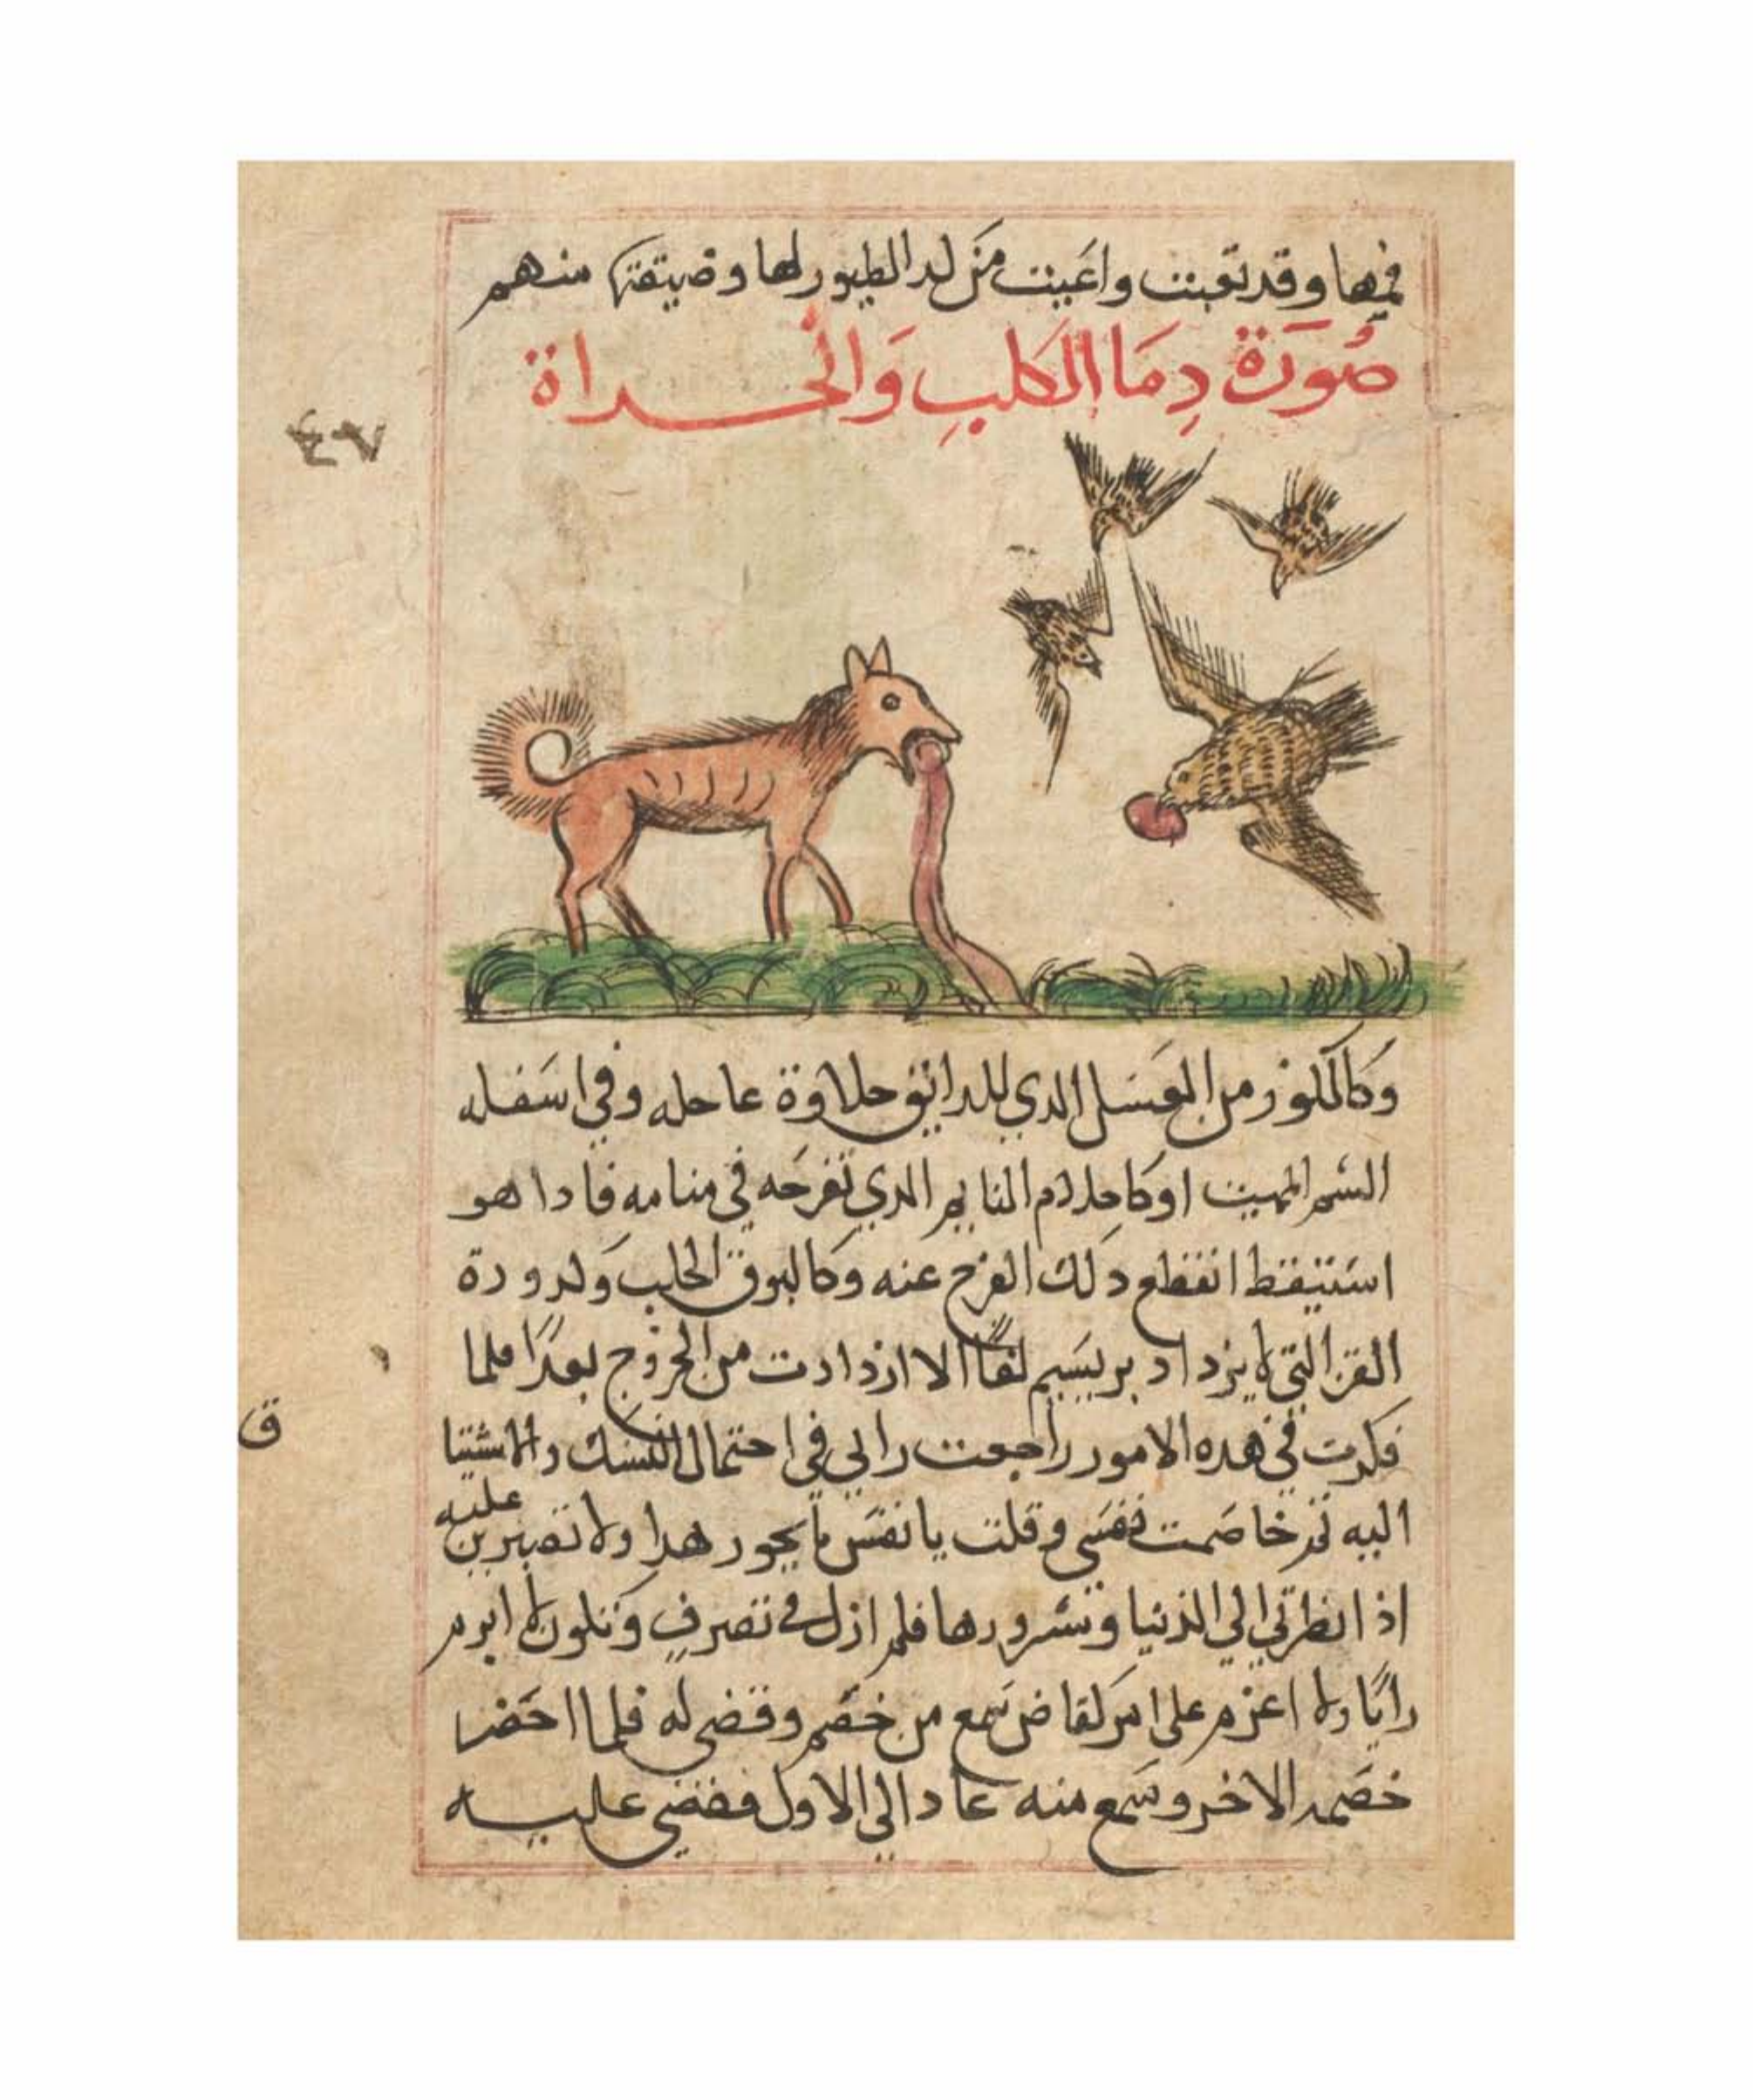 فيها وقد تعبت واعيت من لدالطيور لها وضيقتها منهم
صُورَة دِمَا الكلبِ وَالحداة
وكالكوز من العسل الدي للدايق حلاوة عاجله وفي اسفله
السم المميت او كاحلام النايم الدي تفرحه في منامه فادا هو
استيقظ انقطع دلك الفرح عنه وكالبرق الخلب ولدرودة
القز التي لا يزداد بريسيم لفًا الا ازدادت من الخروج بعدًا فلما
فكرت في هده الامور راجعت رايي في احتمال النسك والاشتيا
اليه ثم خاصمت نفسي وقلت يا نفس ما يجور هدا ولا تصبرين عليه
اذا نظرتي الي الدنيا وشرورها فلم ازل في تصرف وتلون لا ابرم
رايًا ولا اعزم على امر كقاض سمع من خصم وقضى له فلما احضر
خصمه الاخر وسمع منه عاد الي الاول فقضي عليه
ق